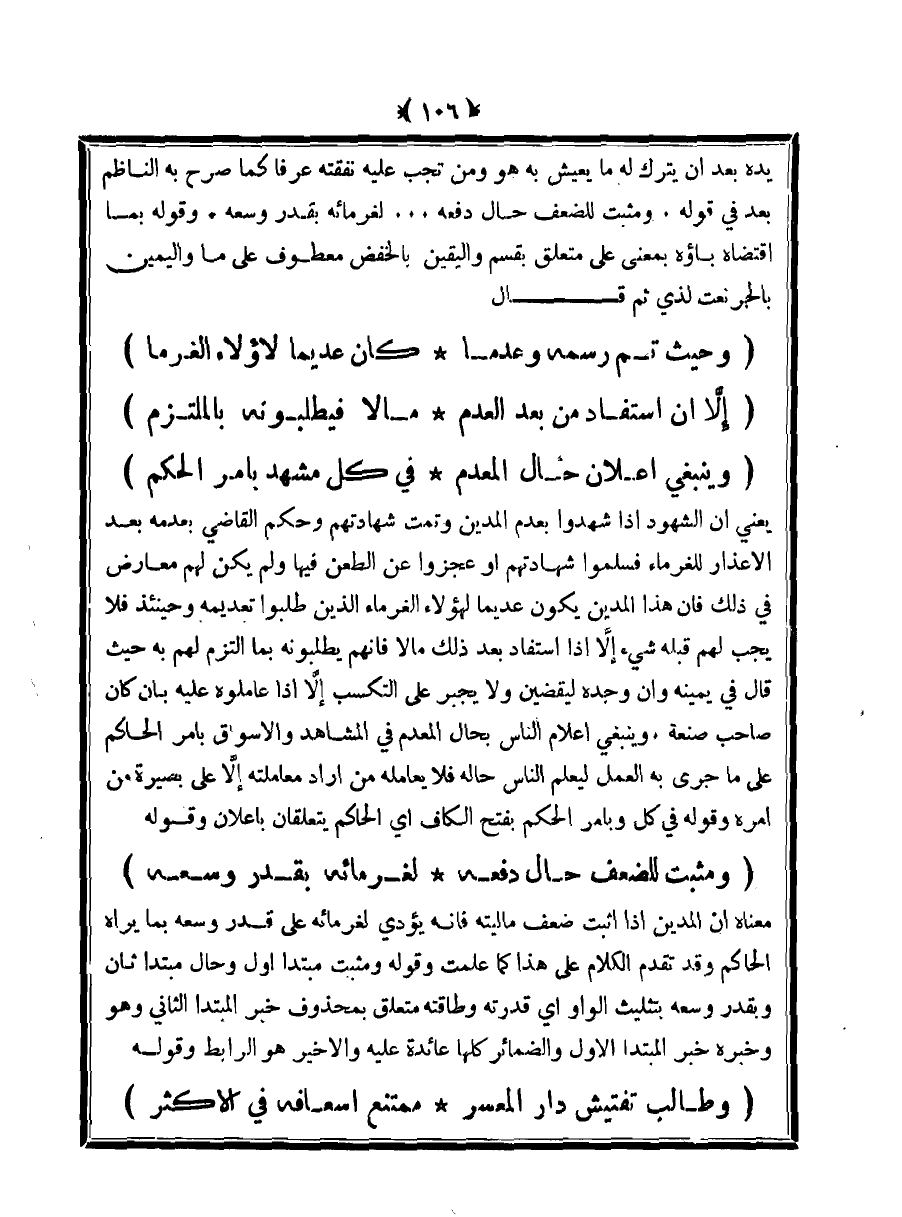 ﴿ ١٠٦ ﴾
يده بعد ان يترك له ما يعيش به هو ومن تجب عليه نفقته عرفا كما صرح به الناظم
بعد في قوله . ومثبت للضعف حال دفعه ... لغرمائه بقدر وسعه . وقوله بما
اقتضاه باؤه بمعنى على متعلق بقسم واليقين بالخفض معطوف على ما واليمين
بالجر نعت لذي ثم قال
( وحيث تم رسمه وعدما ٭ كان عديما لاؤلاء الغرما )
( إلَّا ان استفاد من بعد العدم ٭ مالا فيطلبونه بالملتزم )
( وينبغي اعلان حال المعدم ٭ في كل مشهد بامر الحكم )
يعني ان الشهود اذا شهدوا بعدم المدين وتمت شهادتهم وحكم القاضي بعدمه بعد
الاعذار للغرماء فسلموا شهادتهم او عجزوا عن الطعن فيها ولم يكن لهم معارض
في ذلك فان هذا المدين يكون عديما لهؤلاء الغرماء الذين طلبوا تعديمه وحينئذ فلا
يجب لهم قبله شيء إلَّا اذا استفاد بعد ذلك مالا فانهم يطلبونه بما التزم لهم به حيث
قال في يمينه وان وجده ليقضين ولا يجبر على التكسب إلَّا اذا عاملوه عليه بان كان
صاحب صنعة . وينبغي اعلام الناس بحال المعدم في المشاهد والاسواق بامر الحاكم
على ما جرى به العمل ليعلم الناس حاله فلا يعامله من اراد معاملته إلَّا على بصيرة من
امره وقوله في كل وبامر الحكم بفتح الكاف اي الحاكم يتعلقان باعلان وقوله
( ومثبت للضعف حال دفعه ٭ لغرمائه بقدر وسعه )
معناه انْ المدين اذا اثبت ضعف ماليته فانه يؤدي لغرمائه على قدر وسعه بما يراه
الحاكم وقد تقدم الكلام على هذا كما علمت وقوله ومثبت مبتدا اول وحال مبتدا ثان
وبقدر وسعه بتثليث الواو اي قدرته وطاقته متعلق بمحذوف خبر المبتدا الثاني وهو
وخبره خبر المبتدا الاول والضمائر كلها عائدة عليه والاخير هو الرابط وقوله
( وطالب تفتيش دار المعسر ٭ ممتنع اسعافه في الاكثر )